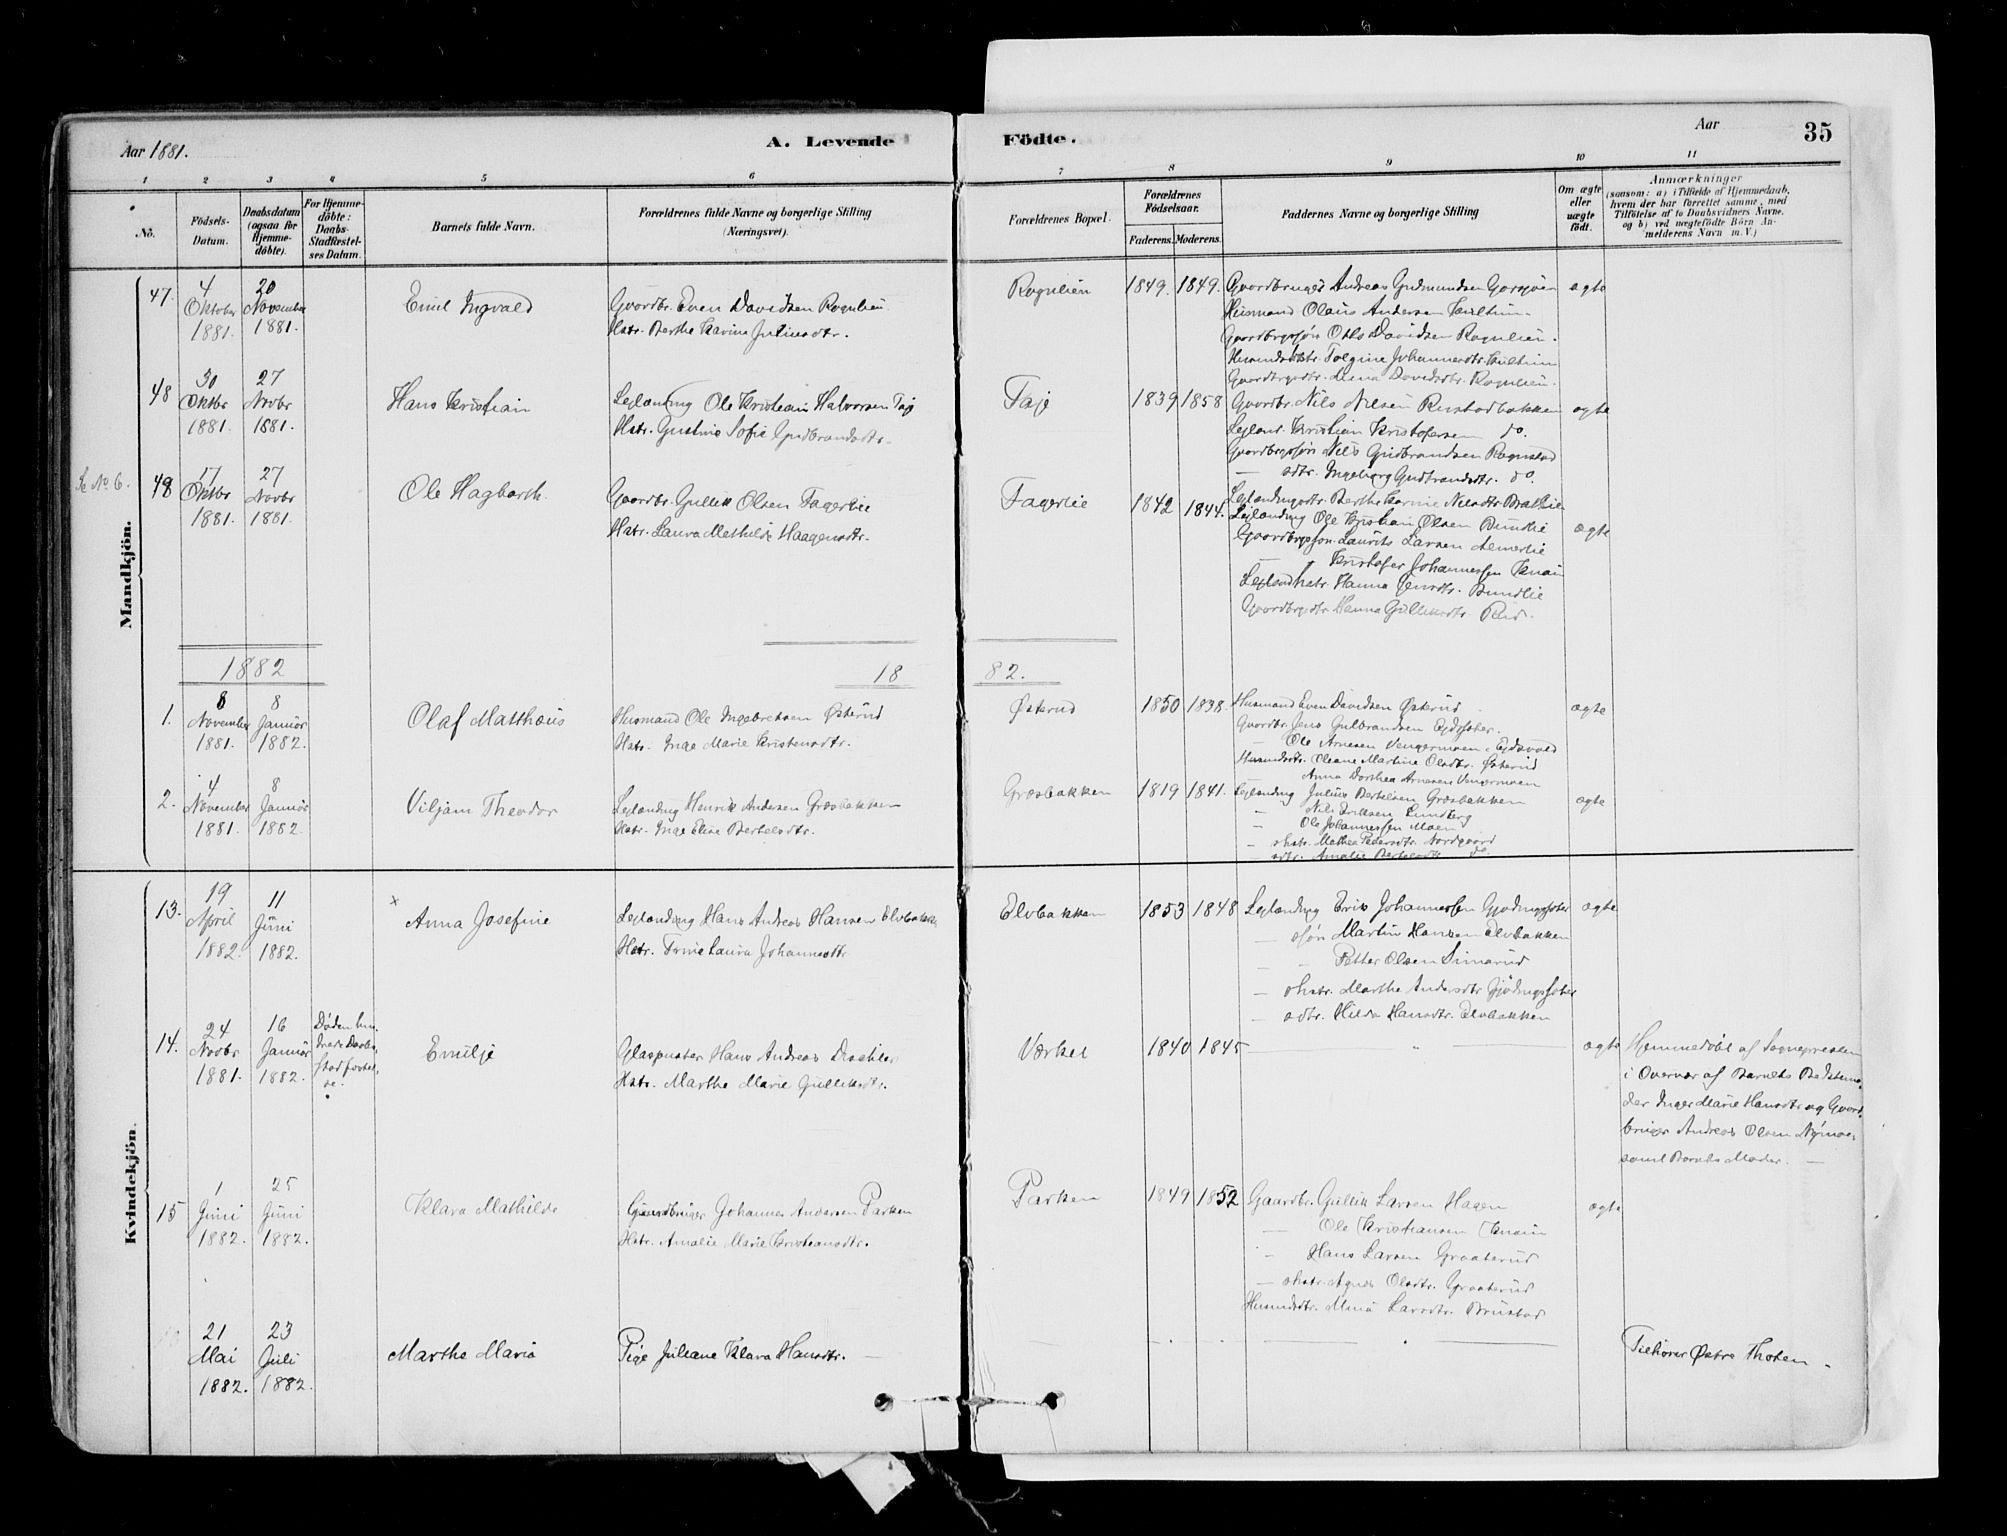 Aar 1881.
A. Levende
Födte.
Aar
35
1 2 3 4 5 6 7 8 9 10 11
No.
Födsels-Datum.
Daabsdatum (ogsaa for Hjemme-döbte).
For Hjemme-döbte: Daabs-Stadfæstel-ses Datum.
Barnets fulde Navn.
Forældrenes fulde Navne og borgerlige Stilling (Næringsvei).
Forældrenes Bopæl.
Forældrenes Födselsaar.
Faderens. Moderens.
Faddernes Navne og borgerlige Stilling
Om ægte eller uægte födt.
Anmærkninger
(saasom: a) i Tilfælde af Hjemmedaab, hvem der har forrettet samme, med Tilföielse af to Daabsvidners Navne, og b) ved uægtefödte Börn An-melderens Navn m. V.)
Mandkjön.
47. 4 Oktober 1881. 20 November 1881.
Emil Ingvald
Gaardbr. Even Davidsen Rognlien
Hstr. Berthe Karine Juliusdtr.
Rognlien
1849. 1849.
Gaardbruger Andreas Gudmundsen
Husmand Olaus Andersen
Gaardbrgssøn Otto Davidsen Rognlien.
Johannesdtr.
Gaardbrgsdtr. Lina Davidsdtr. Rognlien.
ægte
48 30 Oktbr 1881. 27 Novbr 1881.
Hans Kristian
Leilænding Ole Kristian Halvorsen Faje
Hstr. Gustine Sofie Gudbrandsdtr.
Faje
1839 1858
Gaardbr. Nils Nilsen Rustadbakken
Leilænd. Kristian Kristofersen do.
Gaardbrgssøn Nils Gudbrandsen Rognstad
— sdtr. Ingeborg Gudbrandsdtr. do.
Leilændingsdtr. Berthe Karine Nilsdtr.
ægte
Se No 6.
48 17 Oktbr 1881. 27 Novbr 1881.
Ole Hagbarth
Gaardbr. Gullik Olsen Fagerlie
Hstr. Laura Mathilde Haagensdtr.
Fagerlie
1842 1844.
Leilænding Ole Kristian Olsen Bundlie
Gaardbrgssøn Laurits Larsen
— Kristofer Johannessen Knain
Leilændhstr. Hanna Jensdtr. Bundlie
Gaardbrgsdtr. Hanna Gulliksdtr. Rud.
ægte
1882
18
82.
1. 8 November 1881. 8 Januar 1882.
Olaf Matthæus
Husmand Ole Ingebretsen Østerud
Hstr. Inge Marie Kristensdtr.
Østerud
1850 1838.
Husmand Even Davidsen Østerud
Gaardbr. Jens Gulbrandsen
— Ole Arnesen Vengermoen, Eidsvold
Husmdsdtr. Oleane Martine Olsdtr. Østerud
Anna Dorthea Arnesen Vengermoen
ægte
2. 4 November 1881. 8 Januar 1882.
Viljam Theodor
Leilænding Henrik Andersen Græsbakken
Hstr. Inge Elise Bertelsdtr.
Græsbakken
1819 1841.
Leilænding Julius Bertelsen Græsbakken
— Nils Eriksen Lundberg
— Ole Johannessen Moen
— shstr. Mathea Pedersdtr. Nordgaard
— sdtr. Amalie Bertelsdtr. do.
ægte
Kvindekjön.
13. 19 April 1882. 11 Juni 1882.
× Anna Josefine
Leilænding Hans Andreas Hansen Elvbakken
Hstr. Trine Laura Johannesdtr
Elvbakken
1853 1848
Leilænding Erik Johannessen
— søn Martin Hansen Elvbakken
— — Petter Olsen Dimerud
— shstr. Marthe Andersdtr
— sdtr. Hilda Hansdtr. Elvbakken
ægte
14. 24 Novbr 1881. 16 Januar 1882.
Døden hin-drede Daabs-stadfæstel-se.
Emilje
Glaspuster Hans Andreas Drechler
Hstr. Marthe Marie Gulliksdtr.
Værket
1840 1845
— " —
ægte
Hjemmedøbt af Sognepresten
i Overvær af Barnets Bedstemo-
der Inger Marie Hansdtr og Gaard-
bruger Andreas Olsen Nymoe,
samt Barnets Moder. —
15 1 Juni 1882. 25 Juni 1882.
Klara Mathilde
Gaardbruger Johannes Andersen Parken
Hstr. Amalie Marie Kristiansdtr.
Parken
1849 1852
Gaardbr. Gullik Larsen Hagen
— Ole Kristiansen Knain
— Hans Larsen Graaterud
— shstr. Agnes Olsdtr. Graaterud
Husmdsdtr. Mina Larsdtr. Brustad
ægte
21 Mai 1882. 23 Juli 1882.
Marthe Maria
Pige Juliane Klara Hansdtr. —
Tilhører Østre Thoten.